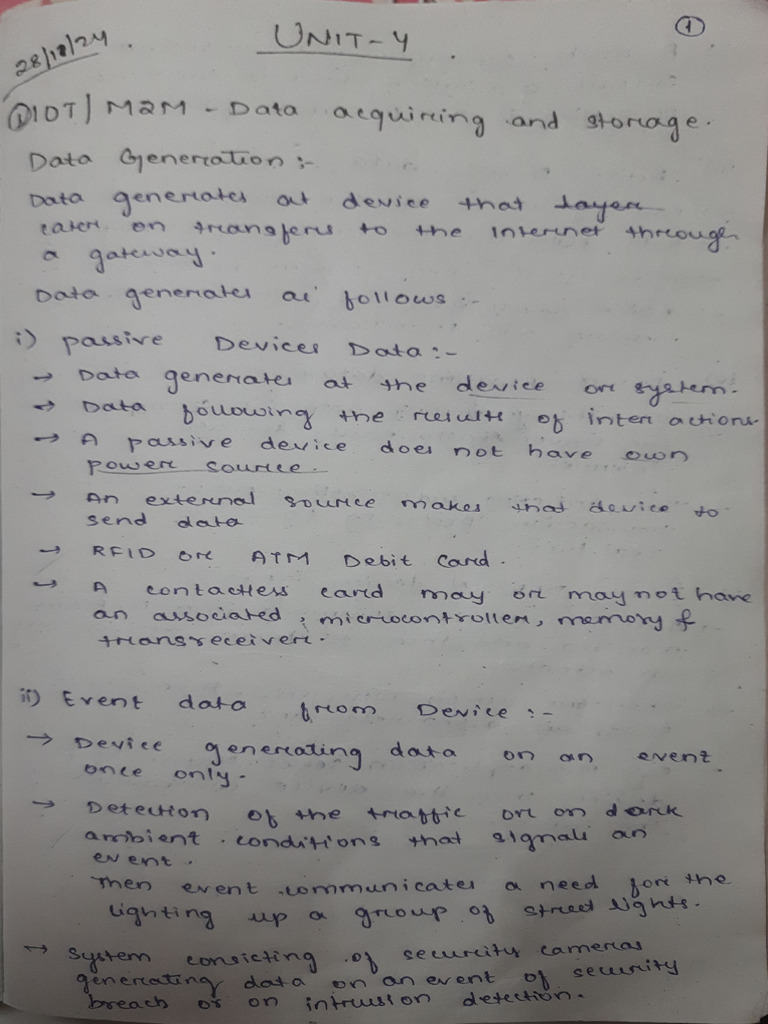 ①
28/12/24.
UNIT-4.
① IOT/M2M - Data acquiring and storage.
Data Generation :-
Data generates at device that
later on transfers to the Internet through
a gateway.
Data generates as follows :-
i) passive Devices Data :-
→ Data generates at the device or system.
→ Data following the results of inter actions.
→ A passive device does not have own
power source.
→ An external source makes that device to
send data
→ RFID or ATM Debit Card.
→ A contactless card may or may not have
an associated, microcontroller, memory &
transreceiver.
ii) Event data from Device :-
→ Device generating data on an event
once only.
→ Detection of the traffic or on dark
ambient conditions that signals an
event.
Then event communicates a need for the
lighting up a group of street lights.
→ System consicting of security cameras
generating data on an event of security
breach or on intrusion detection.